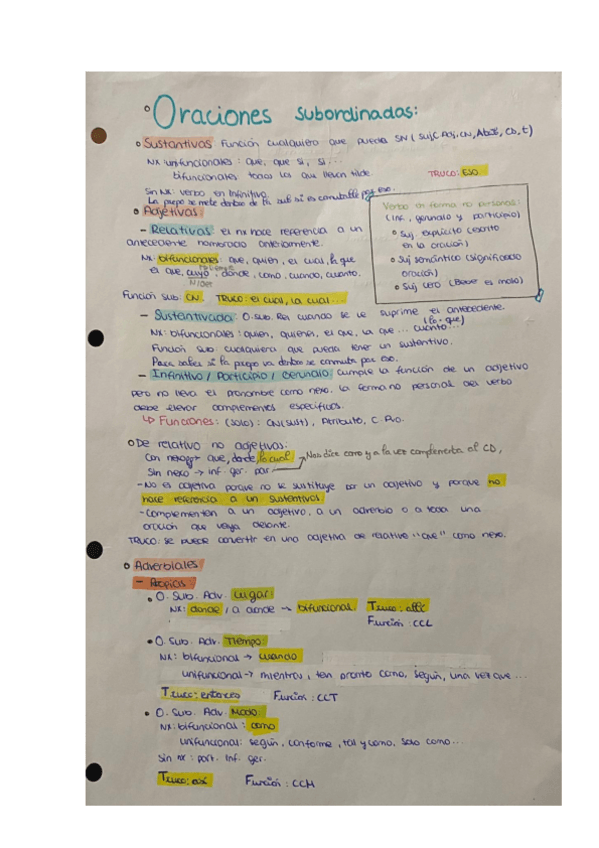 Oraciones subordinadas:
Sustantivas Función cualquiera que pueda SN (Suj, C. Adj, CN, Atrib, CD, t)
NX unifuncionales: que, que si, si...
bifuncionales todos los que llevan tilde. TRUCO: ESO
Sin NX: verbo en infinitivo.
La prepo se mete dentro de la sub si es conmutable por eso.
Adjetivas:
- Relativas el nx hace referencia a un
antecedente nombrado anteriormente.
NX: bifuncionales: que, quien, el cual, la que
el que, cuyo, donde, como, cuando, cuanto.
Función sub: CN. TRUCO: el cual, la cual...
Verbo en forma no personal:
(inf, gerundio y participio)
Suj. explícito (escrito
en la oración)
Suj semántico (significado
oración)
Suj cero (Beber es malo)
- Sustantivada: O. sub. Rel cuando se le suprime el antecedente.
(lo que)
NX: bifuncionales: quien, quienes, el que, la que... cuanto...
Función sub cualquiera que pueda tener un sustantivo.
Para saber si la prepo va dentro se conmuta por eso.
- Infinitivo / Participio / Gerundio: cumple la función de un adjetivo
pero no lleva el pronombre como nexo. La forma no personal del verbo
debe llevar complementos específicos.
↳ Funciones: (solo): CN (sust), Atributo, C. Pvo.
De relativo no adjetivas:
Con nexo que, donde, lo cual → Nos dice como y a la vez complementa al CD,
Sin nexo → inf. ger. par
- No es adjetiva porque no se sustituye por un adjetivo y porque no
hace referencia a un sustantivos
- Complementen a un adjetivo, a un adverbio o a toda una
oración que vaya delante.
TRUCO: se puede convertir en una adjetiva de relativo "que" como nexo.
Adverbiales
- Atópicas:
O. Sub. Adv. Lugar:
NX: donde / a donde → bifuncional. Truco: allí
Función: CCL
O. Sub. Adv. Tiempo:
NX: bifuncional → cuando
unifuncional → mientras, tan pronto como, según, una vez que...
Truco: entonces Función: CCT
O. Sub. Adv. Modo:
NX: bifuncional: como
unifuncional: según, conforme, tal y como, solo como...
Sin nx: part. Inf. ger.
Truco: así Función: CCM